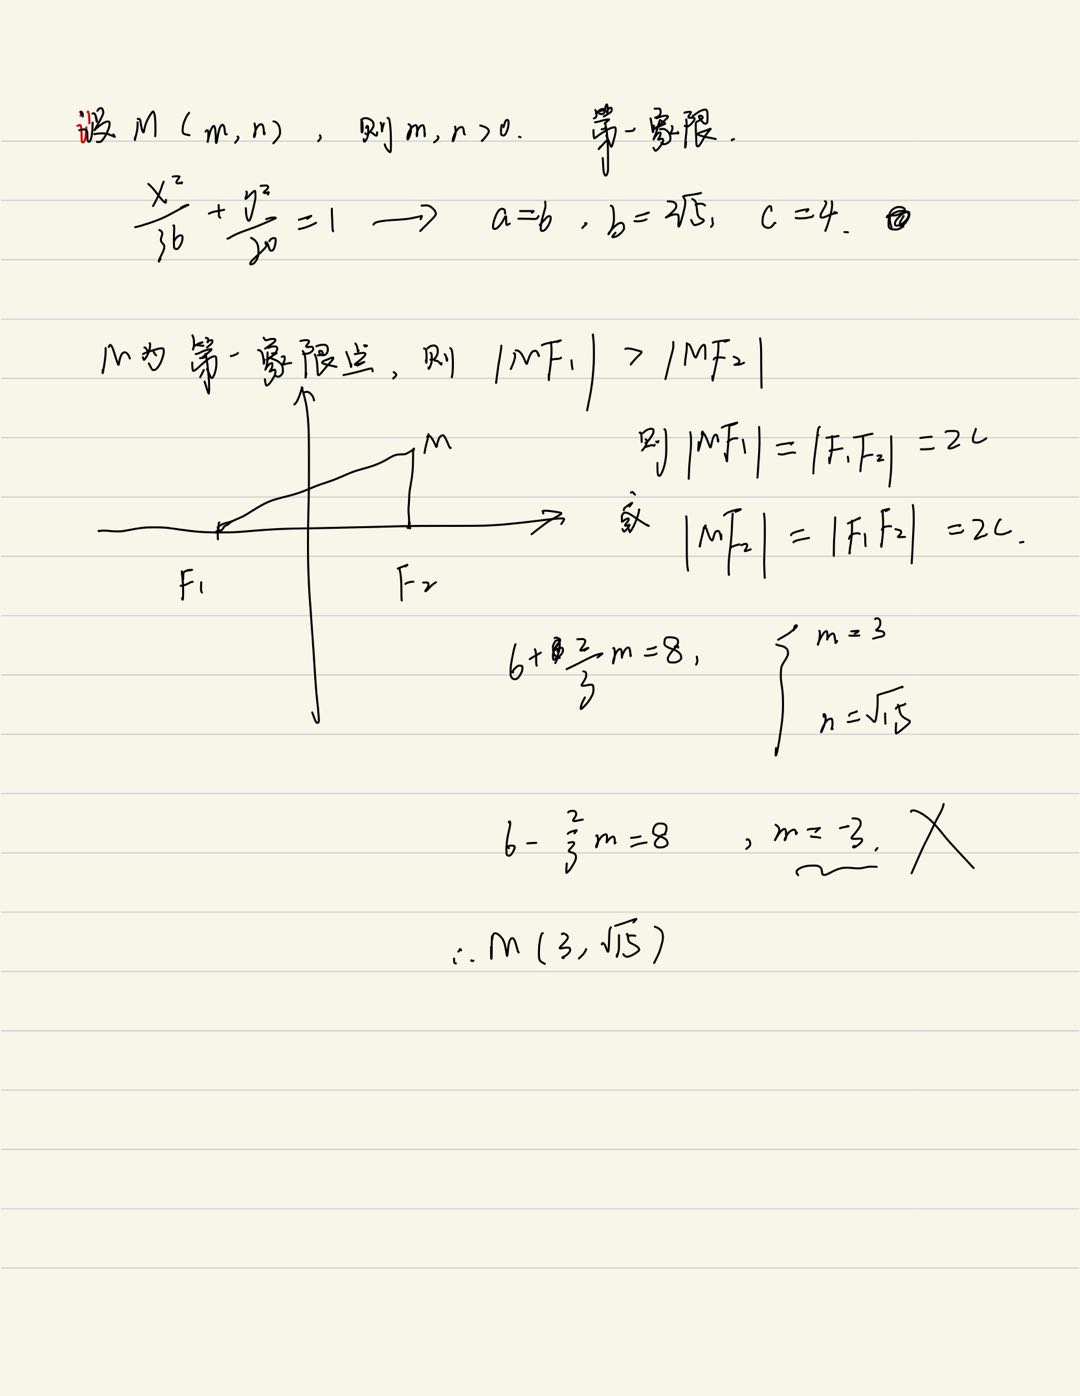 设 M (m,n) , 则 m,n>0. 第一象限.
x²/36 + y²/20 = 1 → a=6 , b=2√5, c=4.
M为第一象限点, 则 |MF₁| > |MF₂|
M
则 |MF₁| = |F₁F₂| = 2c
或 |MF₂| = |F₁F₂| = 2c.
F₁ F₂
6+ 2/3 m = 8, { m=3
n=√15
6- 2/3 m = 8 , m=-3. X
∴ M (3, √15)